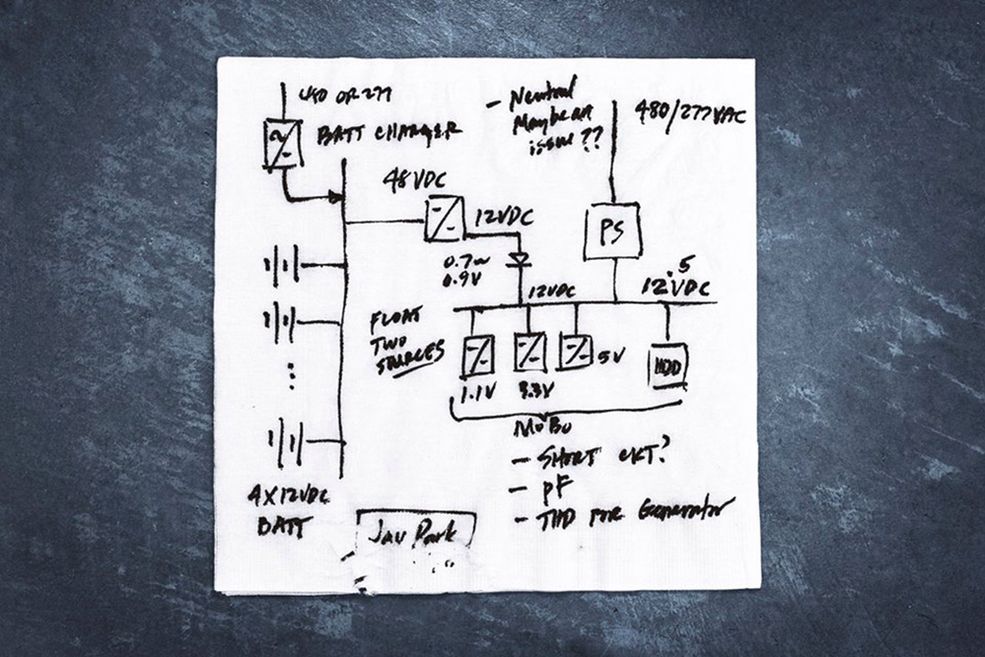 480 OR 277
BATT CHARGER
- Neutral
Maybe an
issue??
480/277VAC
48VDC
12VDC
PS
0.7~
0.9V
12VDC
12.5VDC
FLOAT
TWO
SOURCES
1.1V
3.3V
5V
HDD
MoBo
- SHORT CKT?
- PF
- THD FOR Generator
4X12VDC
BATT
Jay Park